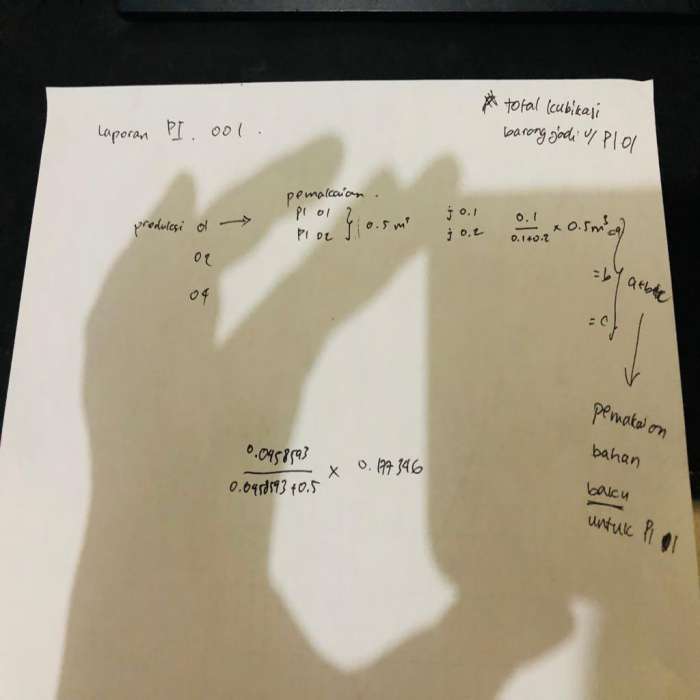 Laporan PI. 001.
* total kubikasi
barang jadi u/ PI 01
pemakaian.
produksi 01 → PI 01 } ; 0.5 m³ j 0.1 0.1 / 0.1+0.2 × 0.5 m³ = a
PI 02 j 0.2
02 = b
04 = c
a+b+c
pemakaian
bahan
baku
untuk PI 01
0.0458593 / 0.0458593+0.5 × 0.177346